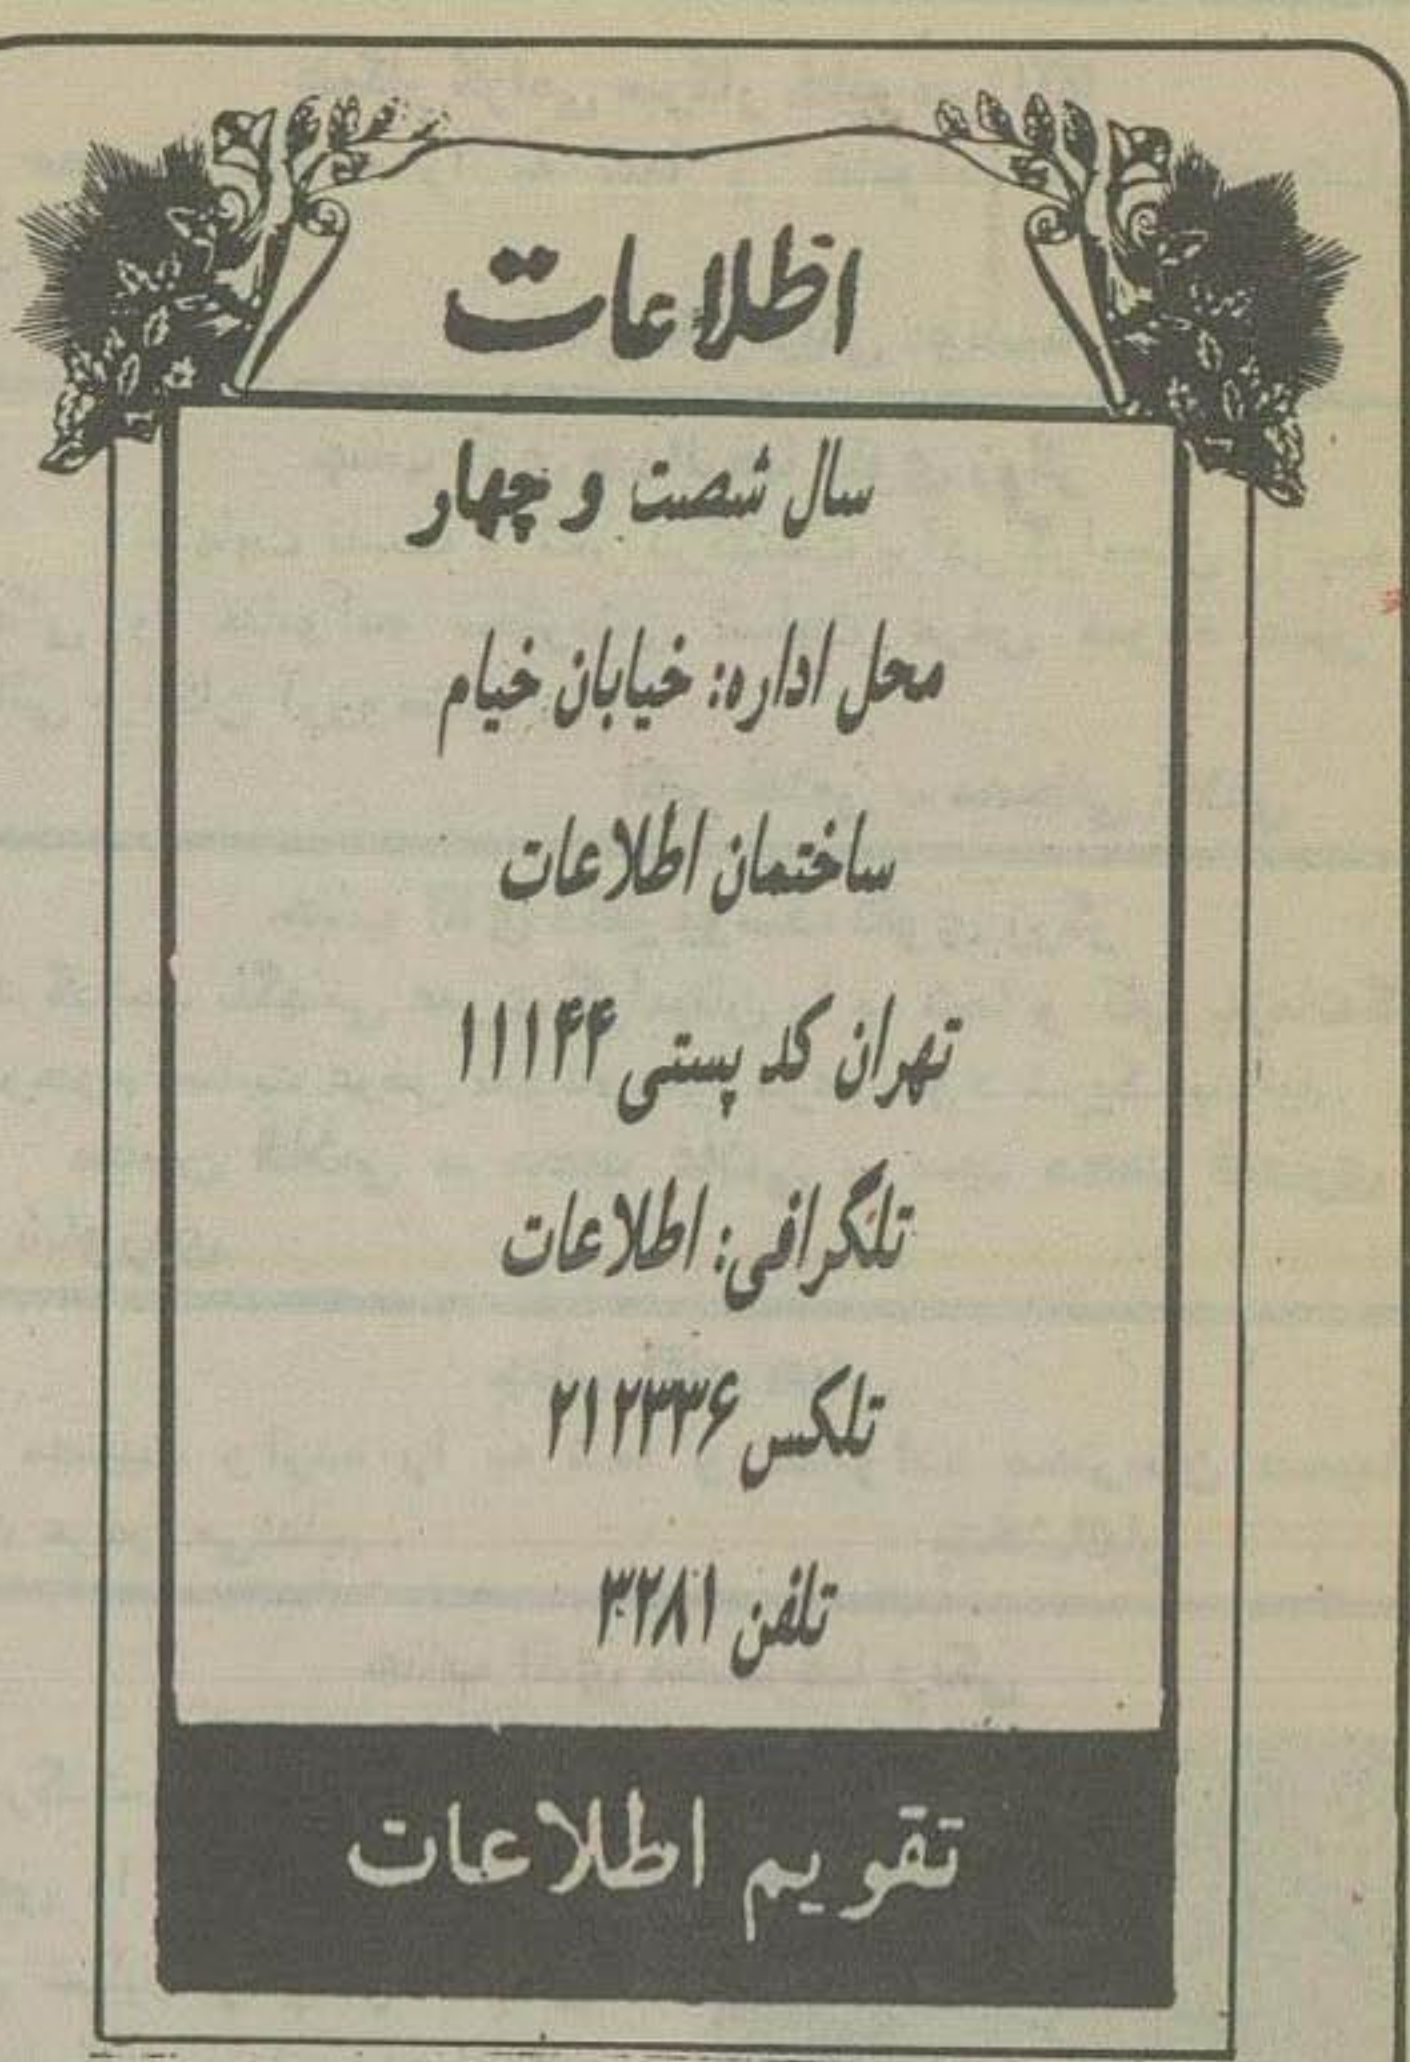 اطلاعات
سال شصت و چهار
محل اداره: خیابان خیام
ساختمان اطلاعات
تهران کد پستی ۱۱۱۴۴
تلگرافی: اطلاعات
تلکس ۲۱۲۳۳۶
تلفن ۳۲۸۱
تقویم اطلاعات